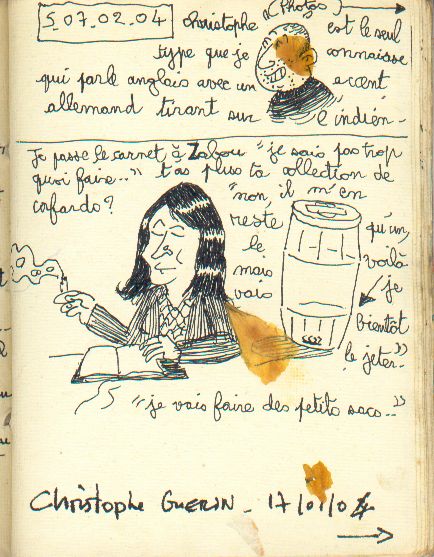 S 07.02.04
christophe (Photos) est le seul
type que je connaisse
qui parle anglais avec un accent
allemand tirant sur l'indien-
Je passe le carnet à Zabou "je sais pas trop
quoi faire.." t'as plus ta collection de
cafards? "non, il m'en
reste qu'un,
le voilà
mais je
vais bientôt
le jeter.."
"je vais faire des petits sacs.."
Christophe GUERIN - 17/01/04